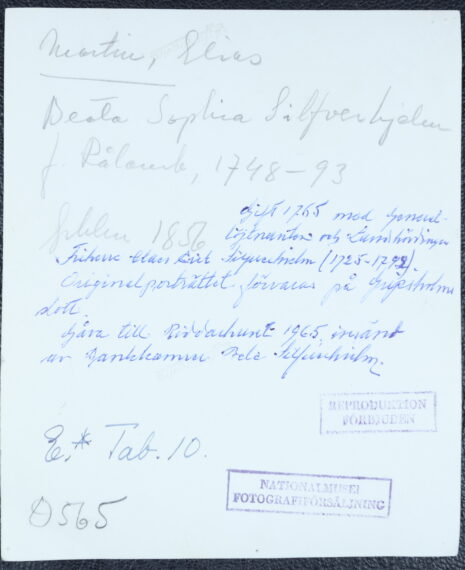 Martin, Elias
Beata Sophia Silfverhjelm
f. Rålamb, 1748-93
Gift 1765 med General-
löjtnanten och Landshövdingen
1856
Friherre Claes Silfverhielm (1725-1792).
Originalporträttet förvaras på Gripsholms
slott.
Gåva till Riddarhuset 1965, insänt
av Bankkamrer Silfverhielm.
REPRODUKTION
FÖRBJUDEN
E.* Tab. 10.
NATIONALMUSEI
FOTOGRAFIFÖRSÄLJNING
D565